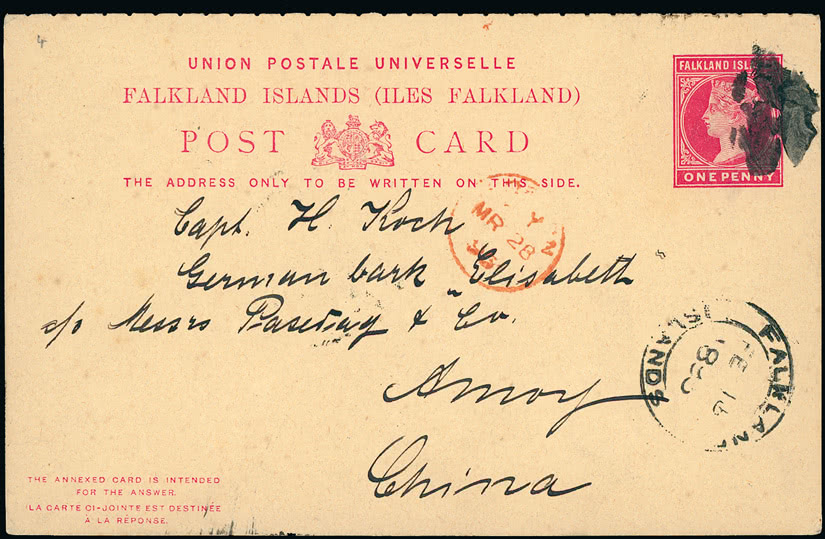 4
UNION POSTALE UNIVERSELLE
FALKLAND ISLANDS (ILES FALKLAND)
POST CARD
THE ADDRESS ONLY TO BE WRITTEN ON THIS SIDE.
FALKLAND ISL
ONE PENNY
Capt. H. Koch
German bark "Elisabeth"
c/o Messrs Pasedag & Co.
Amoy
China
MR 28
FALKLAND ISLANDS
FE
THE ANNEXED CARD IS INTENDED
FOR THE ANSWER.
LA CARTE CI-JOINTE EST DESTINÉE
À LA RÉPONSE.